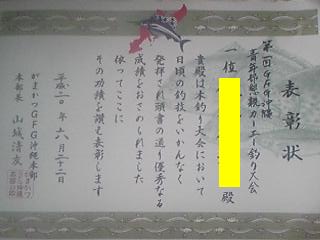 表彰状
第一回GFG沖縄
青年部懇親カーエー釣り大会
一位
殿
貴殿は本釣り大会において
日頃の釣技をいかんなく
発揮され頭書の通り優秀なる
成績をおさめられました
依ってここに
その功績を讃え表彰します
平成二〇年六月二十二日
がまかつGFG沖縄本部
本部長 山城清友